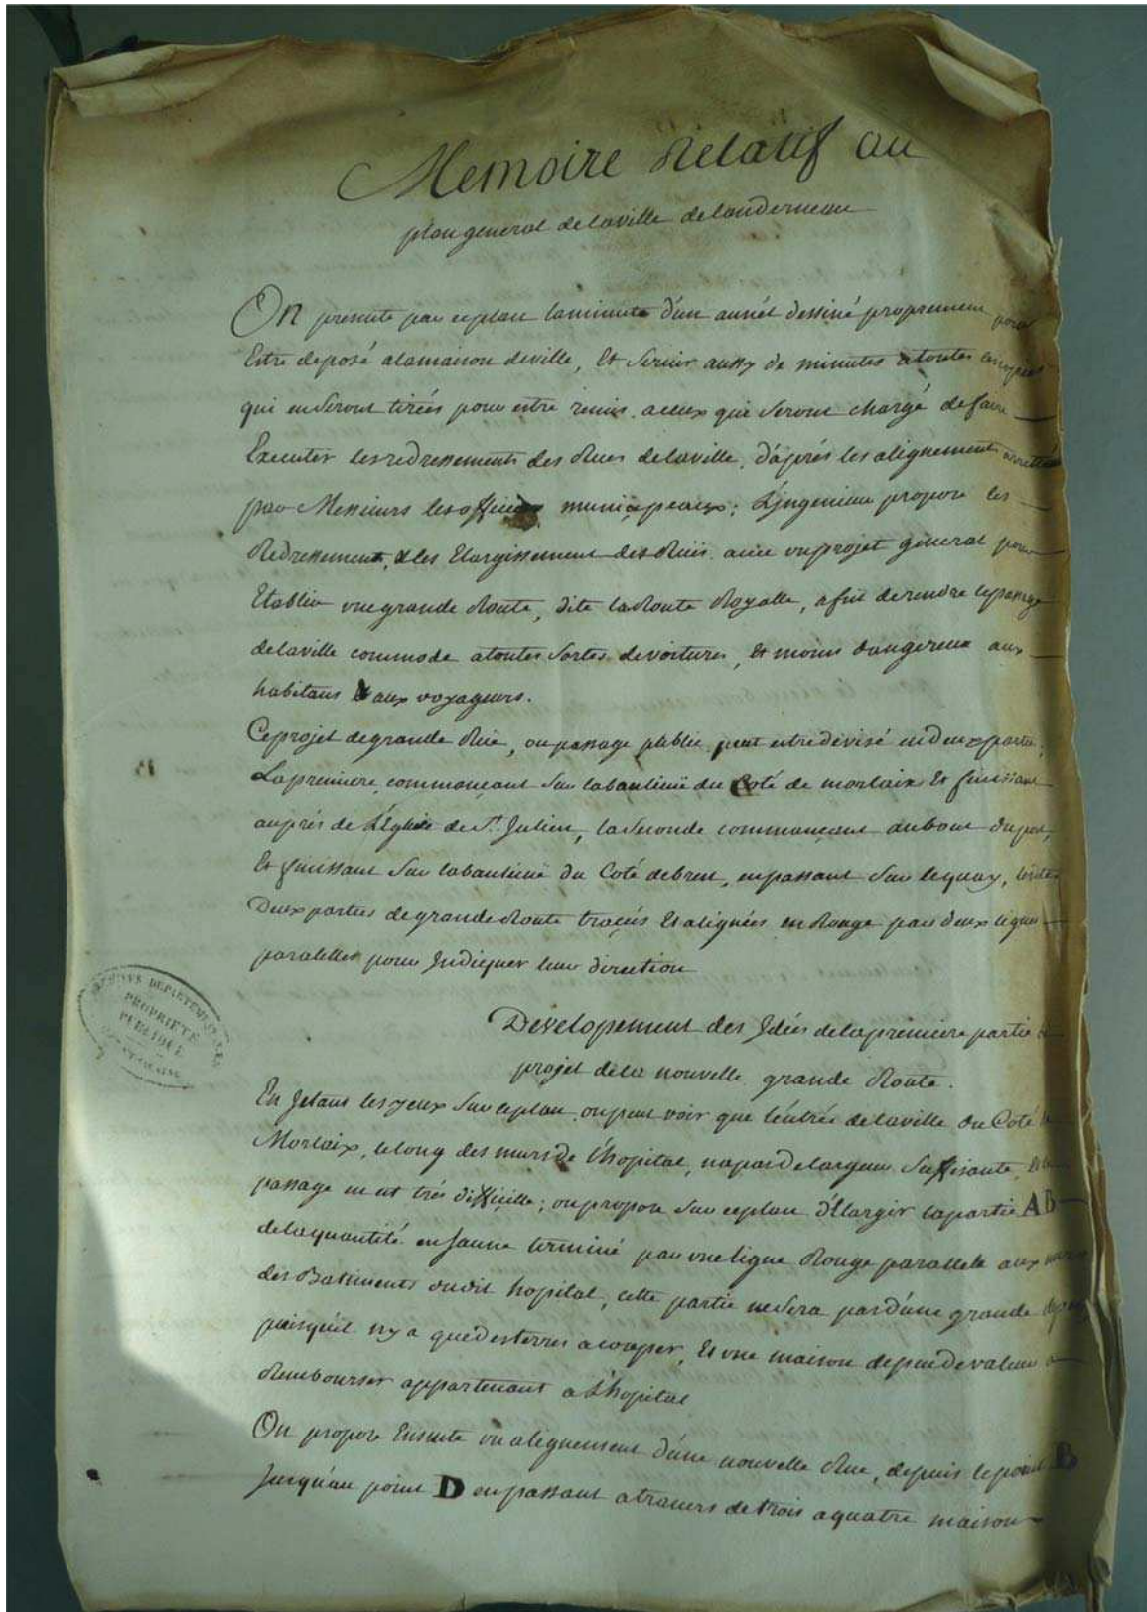 Memoire Relatif au
plan general delaville delanderneau
On presente par ceplan laminute d'un autre dessiné proprement pour
Estre deposé alamaison deville, Et servir aussy de minutes atoutes
qui enseront tirées pour estre remis aceux qui seront chargé defaire
Executer lesredressements des Rues delaville, d'aprés les alignement arrettés
par Messieurs lesofficiers municipeaux; L'jngenieur propose les
Redressement, & les Elargissement des Ruës avec unprojet géneral pour
Etablir unegrande Route, dite laRoute Royalle, afin derendre lepassage
delaville commode atoutes sortes devoitures, Et moins dangereux aux
habitans & aux voyageurs.
Ceprojet degrande Rüe, oupassage public peut estredevisé endeuxpartie;
Lapremiere, commançant sur labanlieuë du Coté de morlaix Et finissant
auprés de L'Eglise de St Julien, laseconde commançant aubout dupont,
Et finissant sur labanlieuë du Coté debrest, enpassant sur lequay,
Deuxparties degrandeRoute tracées Etalignées enRouge par deux lignes
paralelles pour Jndiquer leur direction
Developement des Jdées delapremiere partie
projet dela nouvelle grande Route.
En Jetant lesyeux surceplan, onpeut voir que l'éntrée delaville du Coté de
Morlaix, lelong des mursde l'hopital, napasdelargeur suffisante,
passage en est trés difficille; onpropose sur ceplan d'Elargir lapartie AB
delaquantité enJaune terminé par uneligne Rouge paralelle aux murs
des Batiments dudit hopital, cette partie nesera pasd'une grande
puisqu'il n'y a quedesterres acouper, Et une maison depeudevaleur a
Rembourser appartenant a L'hopital
On propose Ensuite unalignement d'une nouvelle Rue, depuis lepoint B
Jusqu'au point D enpassant atravers detrois aquatre maison
ARCHIVES DEPARTEMENTALES
PROPRIÉTÉ
PUBLIQUE